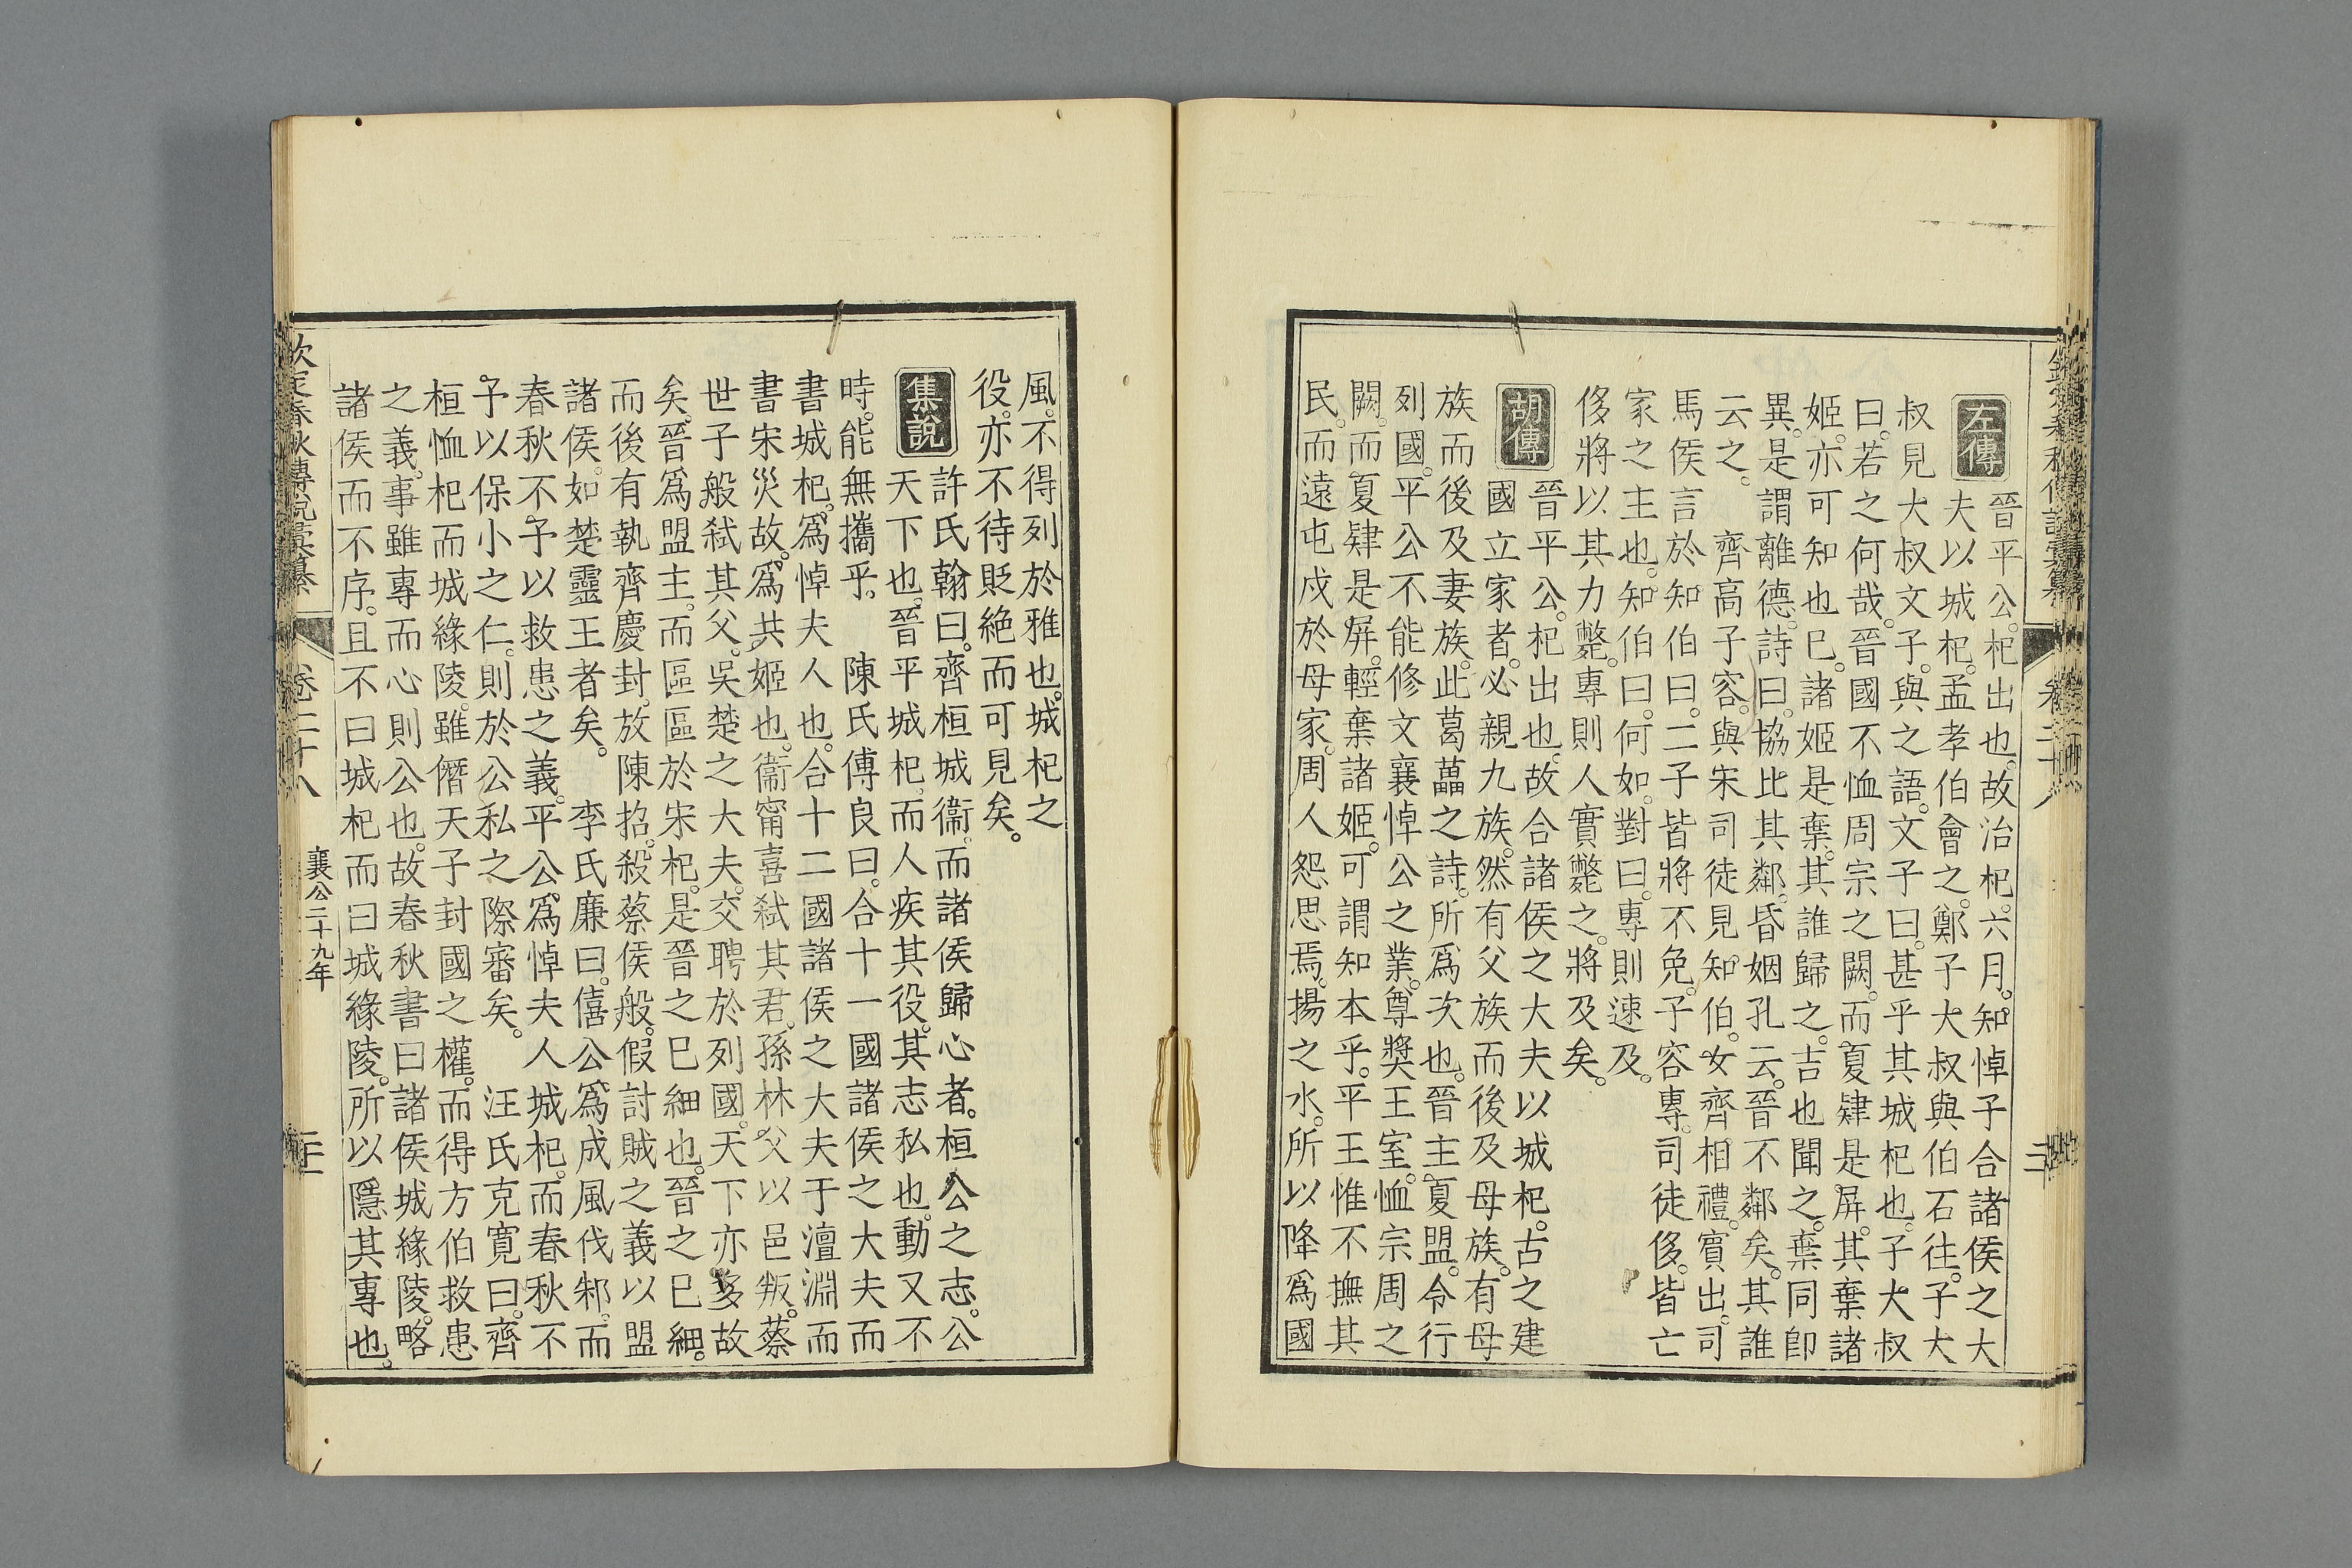 左傳
晉平公。杞出也。故治杞。六月。知悼子合諸侯之大
夫以城杞。孟孝伯會之。鄭子大叔與伯石往。子大
叔見大叔文子。與之語。文子曰。甚乎其城杞也。子大叔
曰。若之何哉。晉國不恤周宗之闕。而夏肄是屏。其棄諸
姬。亦可知也巳。諸姬是棄。其誰歸之。吉也聞之。棄同卽
異。是謂離德。詩曰。協比其鄰。昏姻孔云。晉不鄰矣。其誰
云之。 齊高子容。與宋司徒見知伯。女齊相禮。賓出。司
馬侯言於知伯曰。二子皆將不免。子容專。司徒侈。皆亡
家之主也。知伯曰。何如。對曰。專則速及。
侈將以其力斃。專則人實斃之。將及矣。
胡傳
晉平公。杞出也。故合諸侯之大夫以城杞。古之建
國立家者。必親九族。然有父族而後及母族。有母
族而後及妻族。此葛藟之詩。所爲次也。晉主夏盟。令行
列國。平公不能修文襄悼公之業。尊奬王室。恤宗周之
闕。而夏肄是屏。輕棄諸姬。可謂知本乎。平王惟不撫其
民。而遠屯戍於母家。周人怨思焉。揚之水。所以降爲國
風。不得列於雅也。城杞之
役。亦不待貶絶而可見矣。
集說
許氏翰曰。齊桓城衞。而諸侯歸心者。桓公之志。公
天下也。晉平城杞。而人疾其役。其志私也。動又不
時。能無攜乎。 陳氏傅良曰。合十一國諸侯之大夫而
書城杞。爲悼夫人也。合十二國諸侯之大夫于澶淵而
書宋災故。爲共姬也。衞甯喜弑其君。孫林父以邑叛。蔡
世子般弑其父。吳楚之大夫。交聘於列國。天下亦多故
矣。晉爲盟主。而區區於宋杞。是晉之巳細也。晉之巳細。
而後有執齊慶封。放陳招。殺蔡侯般。假討賊之義以盟
諸侯。如楚靈王者矣。 李氏廉曰。僖公爲成風伐邾。而
春秋不予以救患之義。平公爲悼夫人城杞。而春秋不
予以保小之仁。則於公私之際審矣。 汪氏克寬曰。齊
桓恤杞而城緣陵。雖僭天子封國之權。而得方伯救患
之義。事雖專而心則公也。故春秋書曰諸侯城緣陵。略
諸侯而不序。且不曰城杞而曰城緣陵。所以隱其專也。
欽定春秋傳說彙纂 卷二十八 襄公二十九年